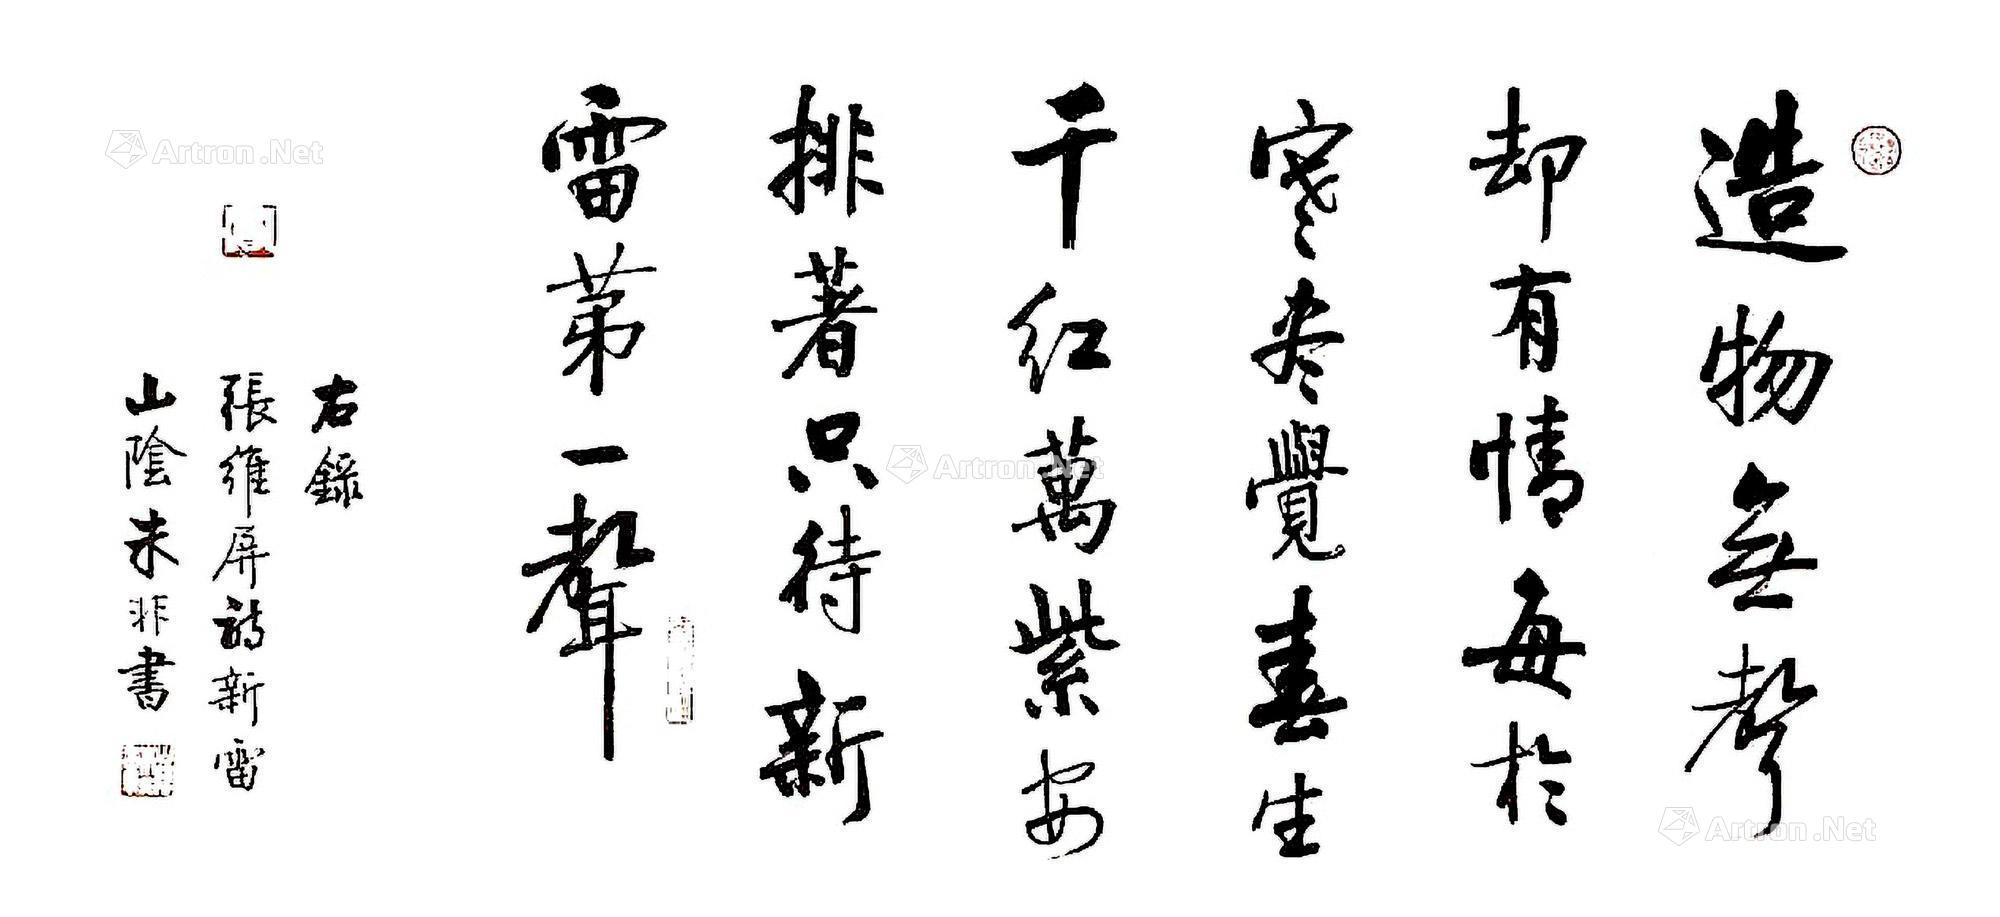 造物無聲
却有情每於
寒盡覺春生
千红萬紫安
排著只待新
雷第一聲
右録
張維屏詩新雷
山陰未非書
Artron.Net
Artron.Net
Artron.Net